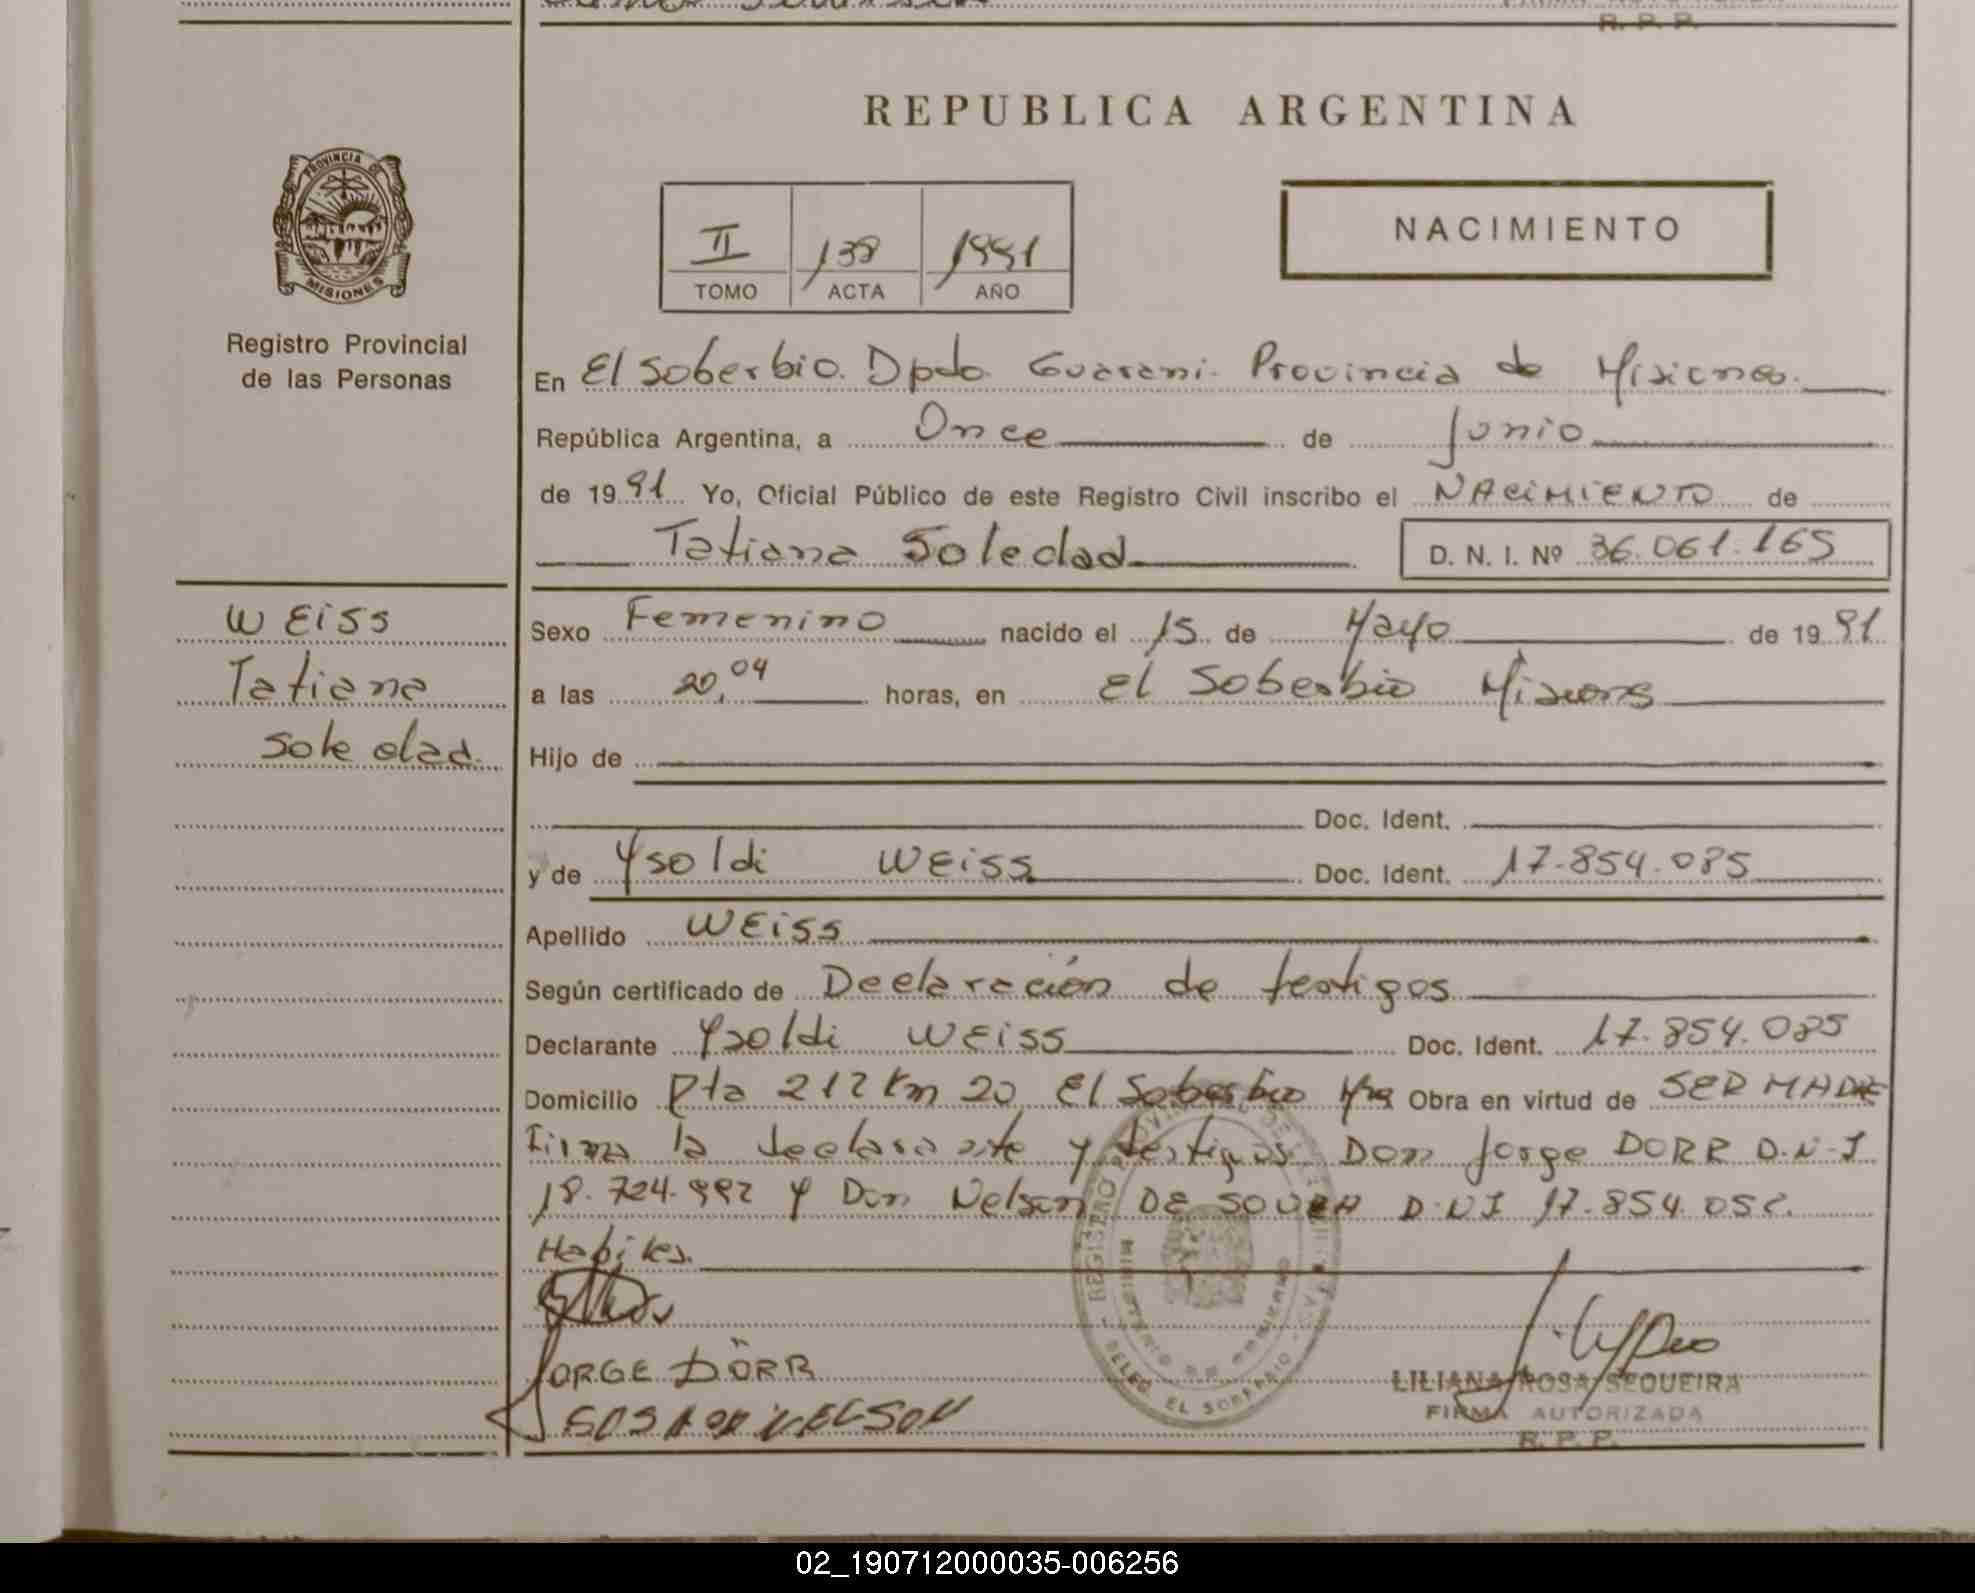 R. P. P.
REPUBLICA ARGENTINA
PROVINCIA DE
MISIONES
Registro Provincial
de las Personas
II 138 1991
TOMO ACTA AÑO
NACIMIENTO
En El Soberbio. Dpdo Guarani. Provincia de Misiones.
República Argentina, a Once de Junio
de 1991 Yo, Oficial Público de este Registro Civil inscribo el NACIMIENTO de
Tatiana Soledad D. N. I. Nº 36.061.165
WEISS
Tatiana
Soledad.
Sexo Femenino nacido el 15 de Mayo de 1991
a las 20,04 horas, en El Soberbio Misiones
Hijo de
Doc. Ident.
y de Ysoldi WEISS Doc. Ident. 17.854.085
Apellido WEISS
Según certificado de Declaración de testigos
Declarante Ysoldi WEISS Doc. Ident. 17.854.085
Domicilio Rta 212 Km 20 El Soberbio Mns Obra en virtud de SER MADRE
Firma la declarante y testigos Don Jorge DORR D.N.I
18.724.992 y Don Nelson DE SOUZA D.N.I 17.854.052.
Habiles.
JORGE DÖRR
NELSON
REGISTRO PROVINCIAL DE LAS
EL SOBERBIO
LILIANA ROSA SEQUEIRA
FIRMA AUTORIZADA
R. P. P.
02_190712000035-006256